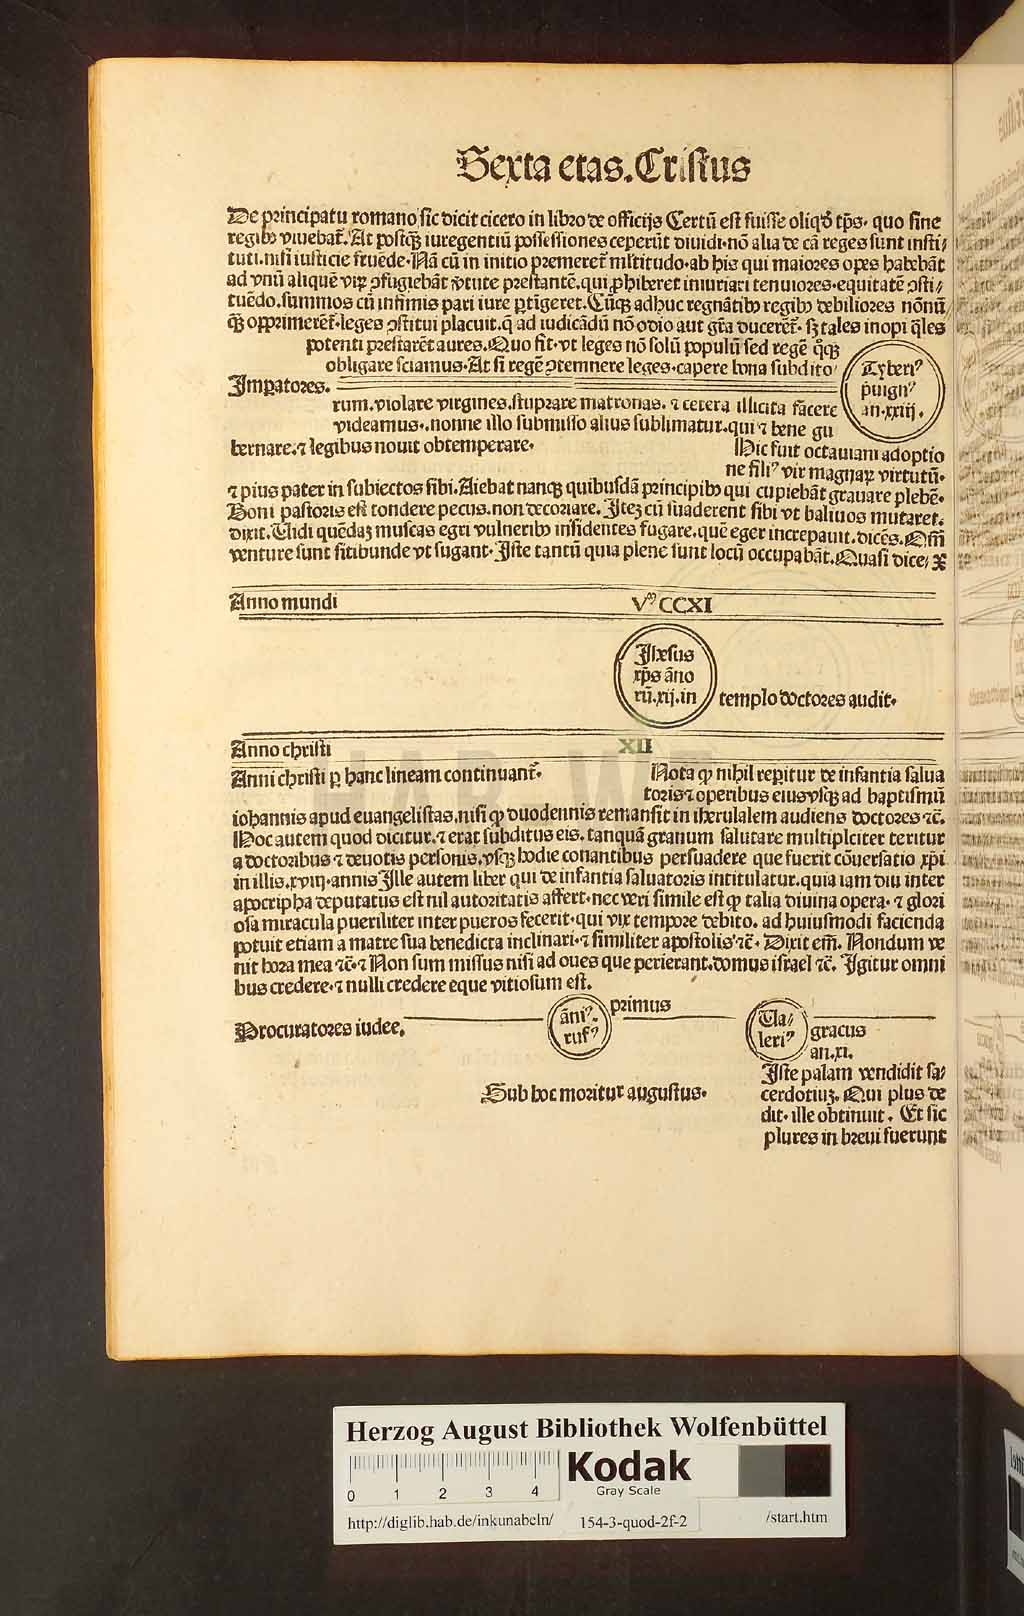 Sexta etas. Cristus
De principatu romano sic dicit cicero in libro de officijs Certũ est fuisse oliq̃ð tp̃s. quo sine
regibꝰ viuebat̃. At postq̃ʒ iuregentiũ possessiones ceperũt diuidi. nõ alia de cã reges sunt insti⸗
tuti. nisi iusticie fruẽde. Nã cũ in initio premeret̃ ml̃titudo. ab his qui maiores opes habebãt
ad vnũ aliquẽ viꝝ ꝯfugiebãt v̾tute prestantẽ. qui ꝓhiberet iniuriari tenuiores. equitatẽ ꝯsti⸗
tuẽdo. summos cũ infimis pari iure ꝑtĩgeret. Cũqʒ adhuc regnãtibꝰ regibꝰ debiliores nõnũ⸗
q̃ʒ opprimerẽt̃. leges ꝯstitui placuit. q̃ ad iudicãdũ nõ odio aut gr̃a ducerẽt̃. sʒ tales inopi q̃les
potenti prestarẽt aures. Quo fit. vt leges nõ solũ populũ sed regẽ q̊qʒ
obligare sciamus. At si regẽ ꝯtemnere leges. capere bona subdito⸗
Tyberiꝰ
p̃uignꝰ
an. xxiij.
Imꝑatores.
rum. violare virgines. stuprare matronas. ⁊ cetera illicita facere
videamus.. nonne illo submisso alius sublimatur. qui ⁊ bene gu
bernare. ⁊ legibus nouit obtemperare.
Hic fuit octauiani adoptio
ne filiꝰ vir magnaꝝ virtutũ.
⁊ pius pater in subiectos sibi. Aiebat nanqʒ quibusdã principibꝰ qui cupiebãt grauare plebẽ.
Boni pastoris est tondere pecus. non decoriare. Iteʒ cũ suaderent sibi vt baliuos mutaret.
dixit. Uidi quẽdaʒ muscas egri vulneribꝰ insidentes fugare. quẽ eger increpauit. dicẽs. Om̃
venture sunt sitibunde vt sugant. Iste tantũ quia plene sunt locũ occupabãt. Quasi dice⸗ x
Anno mundi
Vᵐ CCXI
Ihesus
xp̃s ãno
rũ. xij. in
templo doctores audit.
Anno christi
XII
Anni christi ꝑ hanc lineam continuant̃.
Nota ꝙ nihil reꝑitur de infantia salua
toris ⁊ operibus eius vsqʒ ad baptismũ
iohannis apud euangelistas. nisi ꝙ duodennis remansit in iherusalem audiens doctores ⁊c̃.
Hoc autem quod dicitur. ⁊ erat subditus eis. tanquã granum salutare multipliciter teritur
a doctoribus ⁊ deuotis personis. vsqʒ hodie conantibus persuadere que fuerit cõuersatio xp̃i
in illis. xviij. annis Ille autem liber qui de infantia saluatoris intitulatur. quia iam diu inter
apocripha deputatus est nil autoritatis affert. nec veri simile est ꝙ talia diuina opera. ⁊ glori
osa miracula pueriliter inter pueros fecerit. qui vix tempore debito. ad huiusmodi facienda
potuit etiam a matre sua benedicta inclinari. ⁊ similiter apostolis ⁊c̃. Dixit em̃. Nondum ve
nit hora mea ⁊c̃. ⁊ Non sum missus nisi ad oues que perierant. domus israel ⁊c̃. Igitur omni
bus credere. ⁊ nulli credere eque vitiosum est.
Procuratores iudee.
ãniꝰ.
rufꝰ
primus
Ua⸗
leriꝰ
gracus
an. xi.
Sub hoc moritur augustus.
Iste palam vendidit sa⸗
cerdotiuʒ. Qui plus de
dit. ille obtinuit. Et sic
plures in breui fuerunt
HAB WF
Herzog August Bibliothek Wolfenbüttel
0 1 2 3 4
Kodak
Gray Scale
http://diglib.hab.de/inkunabeln/
154-3-quod-2f-2
/start.htm